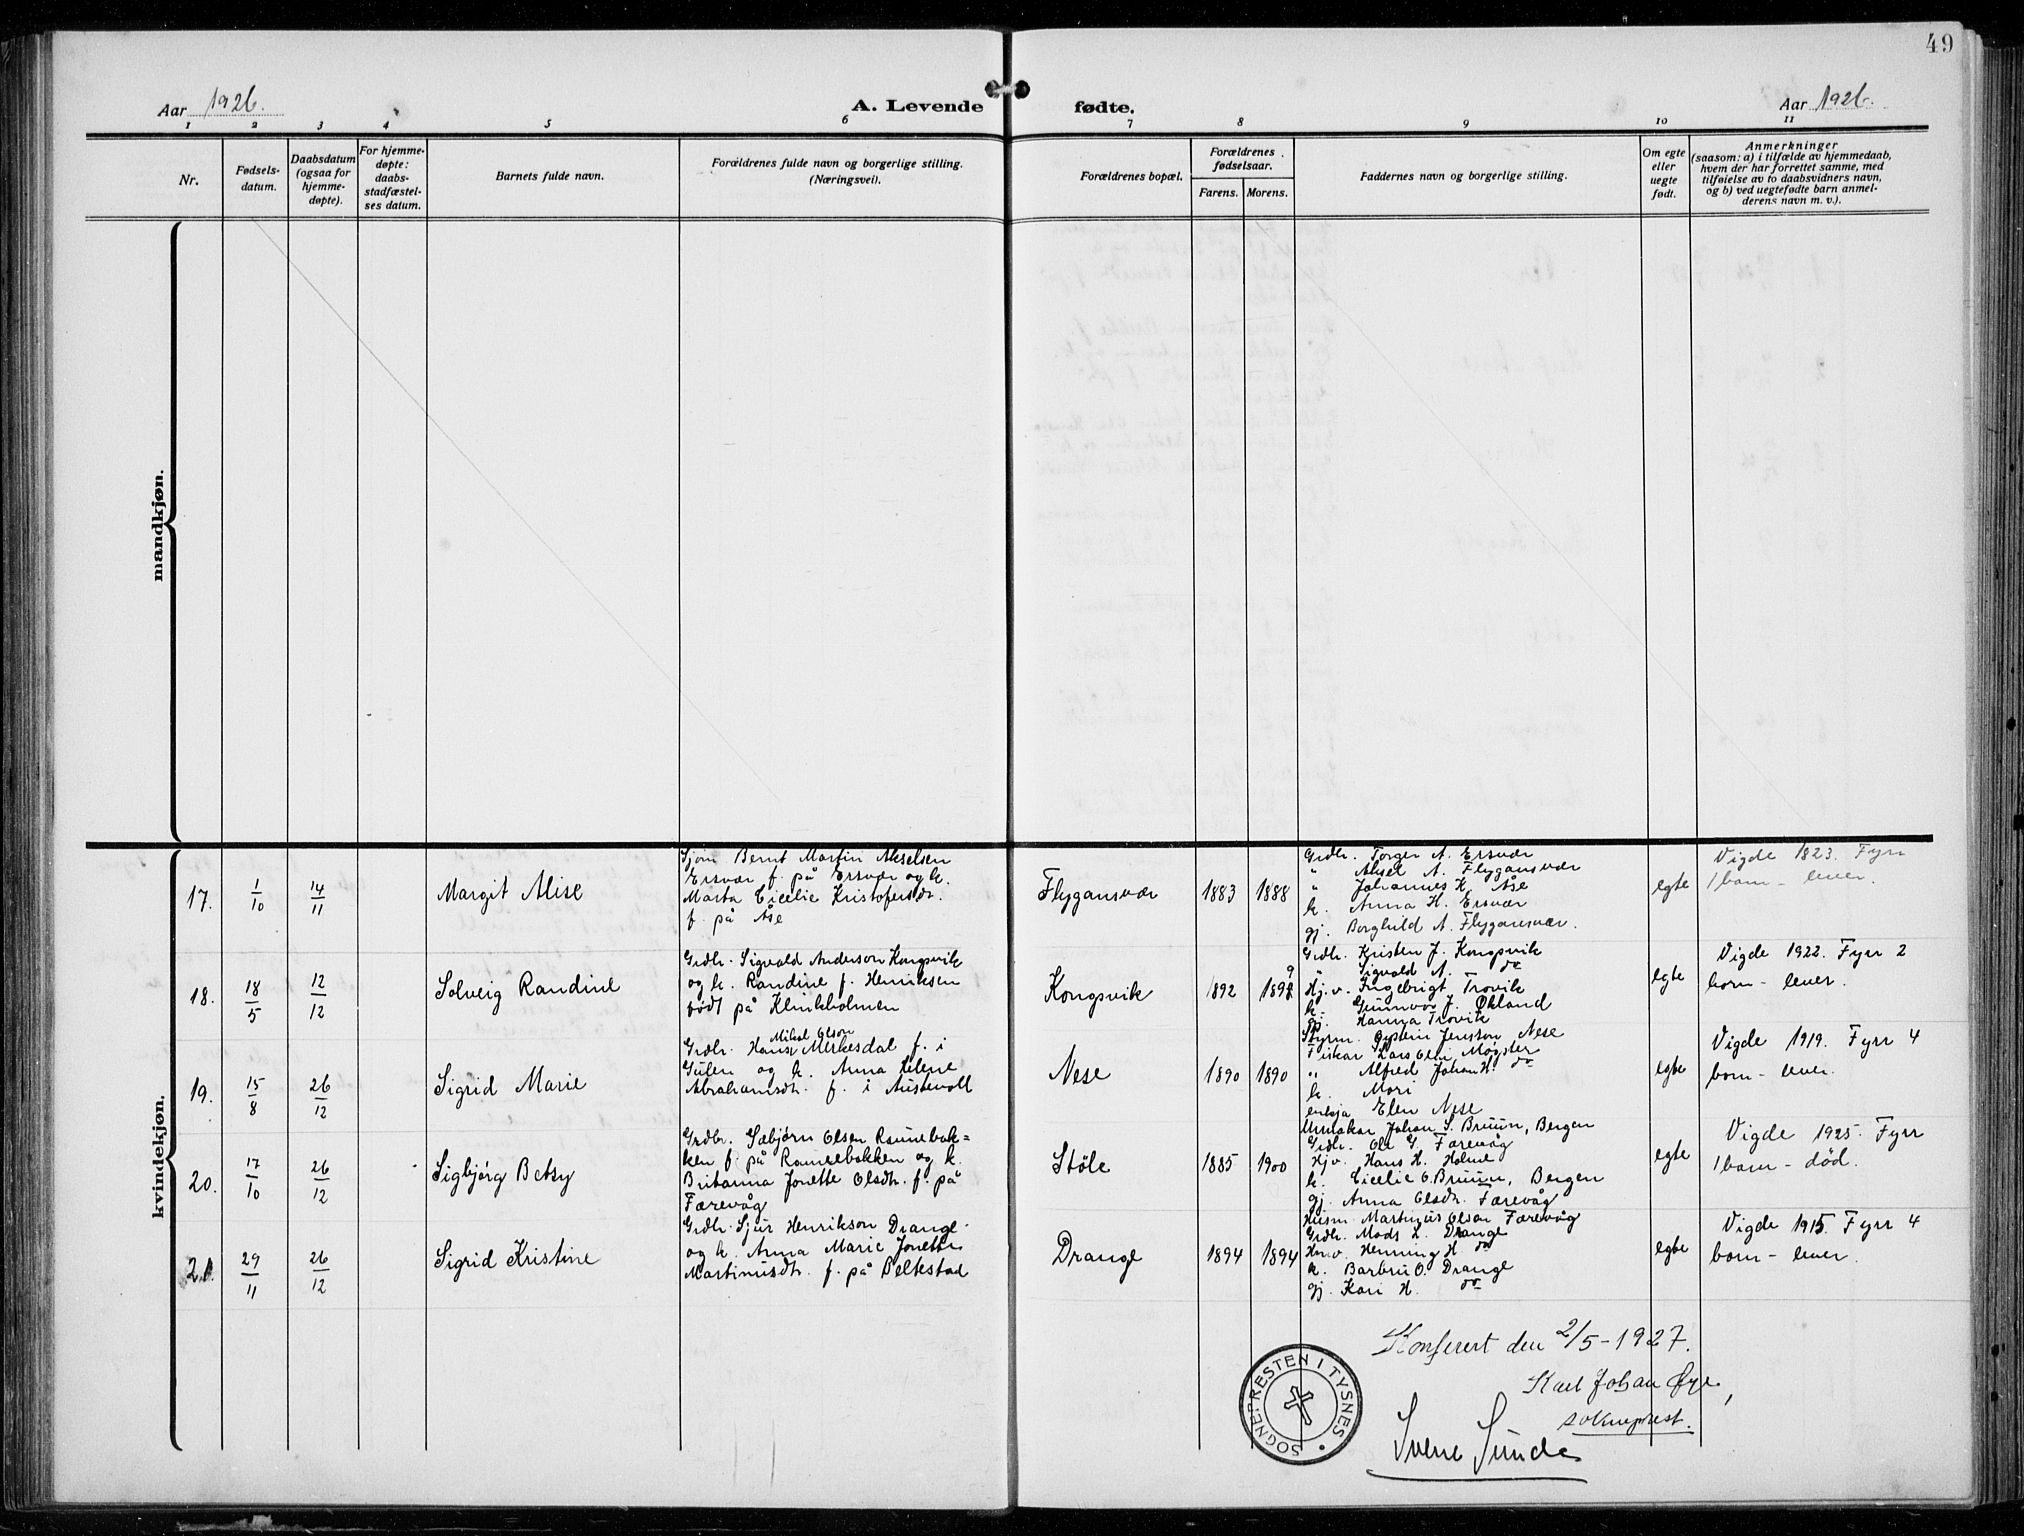 49
Aar 1926.
A. Levende fødte.
Aar 1926.
1 2 3 4 5 6 7 8 9 10 11
Nr.
Fødsels-
datum.
Daabsdatum
(ogsaa for
hjemme-
døpte).
For hjemme-
døpte:
daabs-
stadfæstel-
ses datum.
Barnets fulde navn.
Forældrenes fulde navn og borgerlige stilling.
(Næringsvei).
Forældrenes bopæl.
Forældrenes
fødselsaar.
Farens. Morens.
Faddernes navn og borgerlige stilling.
Om egte
eller
uegte
født.
Anmerkninger
(saasom: a) i tilfælde av hjemmedaab,
hvem der har forrettet samme, med
tilføielse av to daabsvidners navn,
og b) ved uegtefødte barn anmel-
derens navn m. v.).
mandkjøn.
kvindekjøn.
17.
1/10
14/11
Margit Alise
Sjøm Bernt Martin Akselsen
Ersvær f. på Ersvær og k.
Marta Cicelie Kristofersdr.
f. på Åse
Flygansvær
1883
1888
Grdbr. Torger A. Ersvær
" Aksel A. Flygansvær
" Johannes K. Åse
k. Anna H. Ersvær
gj. Borghild A. Flygansvær.
egte
Vigde 1823. Fyrr
1 born - lever.
18.
18/5
12/12
Solveig Randine
Grdbr. Sigvald Anderson Kongsvik
og k. Randine f. Henriksen
født på Klinkholmen
Kongsvik
1892
1898 9
Grdbr. Kristen J. Kongsvik
" Sigvald A. do
Hj.v. Ingebrigt Trovik
k. Gunnvor J. Økland
gj. Hanna Trovik
egte
Vigde 1922. Fyrr 2
born - lever.
19.
15/8
26/12
Sigrid Marie
Mikal Olson
Grdbr. Hans Merkesdal f. i
Gulen og k. Anna Helene
Abrahamsdtr. f. i Austevoll
Nese
1890
1890
Styrm. Øystein Jensson Nese
Fiskar Lars Olai Møgster
" Alfred Johan H. do
k. Mori
enkja Elen Nese
egte
Vigde 1919. Fyrr 4
born - lever.
20.
17/10
26/12
Sigbjørg Betsy
Grdbr. Sæbjørn Olsen Raunebok=
ken f. på Raunebokken og k.
Britanna Jonette Olsdtr. f. på
Færevåg
Støle
1885
1900
Urmakar Johan S. Bruun, Bergen
Grdbr. Ole G. Færevåg
Hj.v. Hans H. Holme
k. Cicelie O. Bruun, Bergen
gj. Anna Olsdtr. Færevåg
egte
Vigde 1925. Fyrr
1 born - død.
21.
29/11
26/12
Sigrid Kristine
Grdbr. Sjur Henrikson Drange
og k. Anna Marie Jonette
Martinusdtr. f. på Beltestad
Drange
1894
1894
Husm. Martinus Olson Færevåg
Grdbr. Mads L. Drange
Hm.v. Henning H do
k. Barbru O. Drange
gj. Kari H. do
egte
Vigde 1915. Fyrr 4
born - lever.
Konferert den 2/5-1927.
Karl Johan Øye,
sokneprest.
SOGNEPRESTEN I TYSNES
Svene Sunde